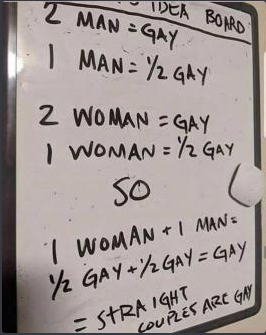 IDEA BOARD
2 MAN = GAY
1 MAN = ½ GAY
2 WOMAN = GAY
1 WOMAN = ½ GAY
SO
1 WOMAN + 1 MAN =
½ GAY + ½ GAY = GAY
= STRAIGHT
COUPLES ARE GAY